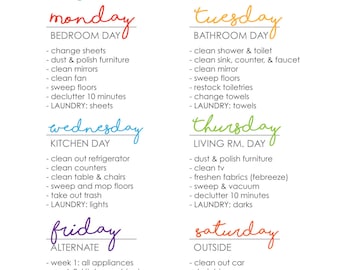 monday
BEDROOM DAY
- change sheets
- dust & polish furniture
- clean mirrors
- clean fan
- sweep floors
- declutter 10 minutes
- LAUNDRY: sheets
tuesday
BATHROOM DAY
- clean shower & toilet
- clean sink, counter, & faucet
- clean mirror
- sweep floors
- restock toiletries
- change towels
- LAUNDRY: towels
wednesday
KITCHEN DAY
- clean out refrigerator
- clean counters
- clean table & chairs
- sweep and mop floors
- take out trash
- LAUNDRY: lights
thursday
LIVING RM. DAY
- dust & polish furniture
- clean tv
- freshen fabrics (febreeze)
- sweep & vacuum
- declutter 10 minutes
- LAUNDRY: darks
friday
ALTERNATE
- week 1: all appliances
saturday
OUTSIDE
- clean out car